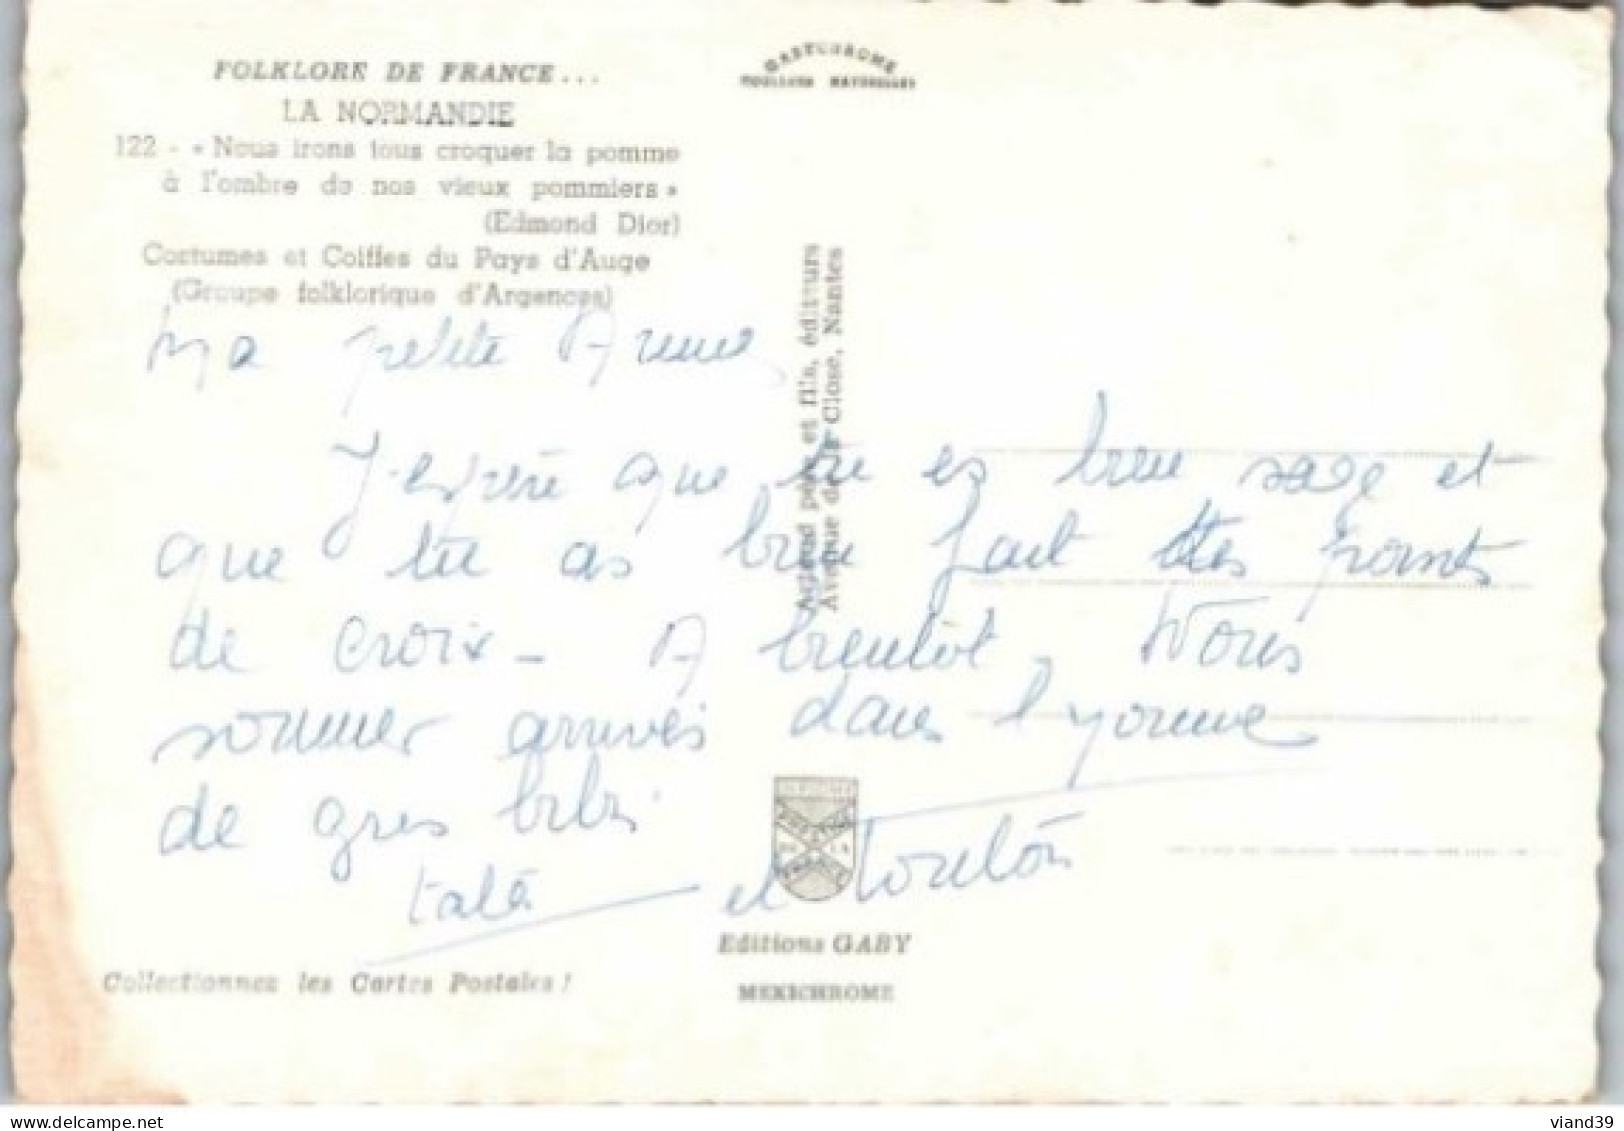 FOLKLORE DE FRANCE...
LA NORMANDIE
122 - « Nous irons tous croquer la pomme
à l'ombre de nos vieux pommiers »
(Edmond Dior)
Costumes et Coiffes du Pays d'Auge
(Groupe folklorique d'Argences)
GABYCHROME
COULEURS NATURELLES
Artaud père et fils, éditeurs
Avenue de la Close, Nantes
Ma petite Anne,
J'espère que tu es bien sage et
que tu as bien fait des points
de croix - A bientôt, Nous
sommes arrivés dans l'yonne
de gros bibis
tata et tonton
Editions GABY
MEXICHROME
Collectionnez les Cartes Postales !
viand39